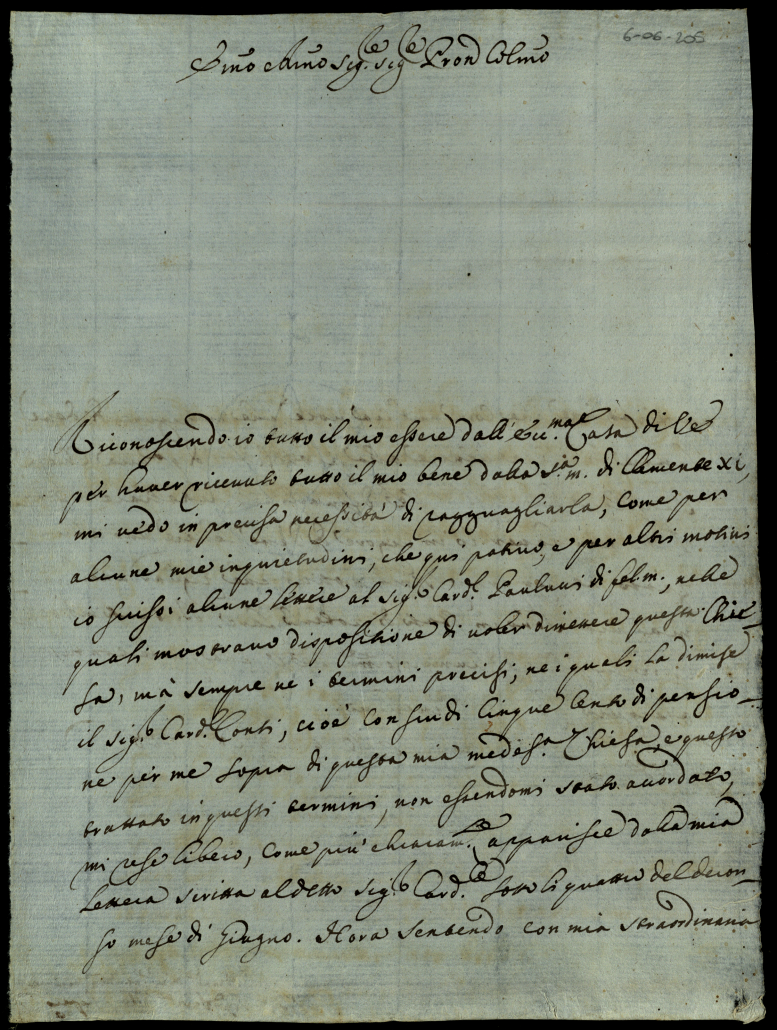 6-06-205
Emo Rmo Sig.re Sig.re Pron Colmo
Riconoscendo io tutto il mio essere dall' Ecc.ma Casa di VE
per haver ricevuto tutto il mio bene dalla S.ta m. di Clemente XI,
mi vedo in precisa necessità di ragguagliarla, come per
alcune mie inquietudini, che qui pativo, e per altri motivi
io scrissi alcune lettere al Sig.r Card.l Paulucci di fel. m., nelle
quali mostravo dispositione di voler dimettere questa Chie-
sa, mà sempre ne i termini precisi, ne i quali la dimise
il Sig.r Card.l Conti, cioè con scudi Cinque Cento di pensio-
ne per me sopra di questa mia medes.a Chiesa, e questo
trattato in questi termini, non essendomi stato accordato,
mi rese libero, come più chiaram.te apparisce dalla mia
lettera scritta al detto Sig.r Card.le sotto li quattro del decor-
so mese di Giugno. Hora sentendo con mia straordinaria